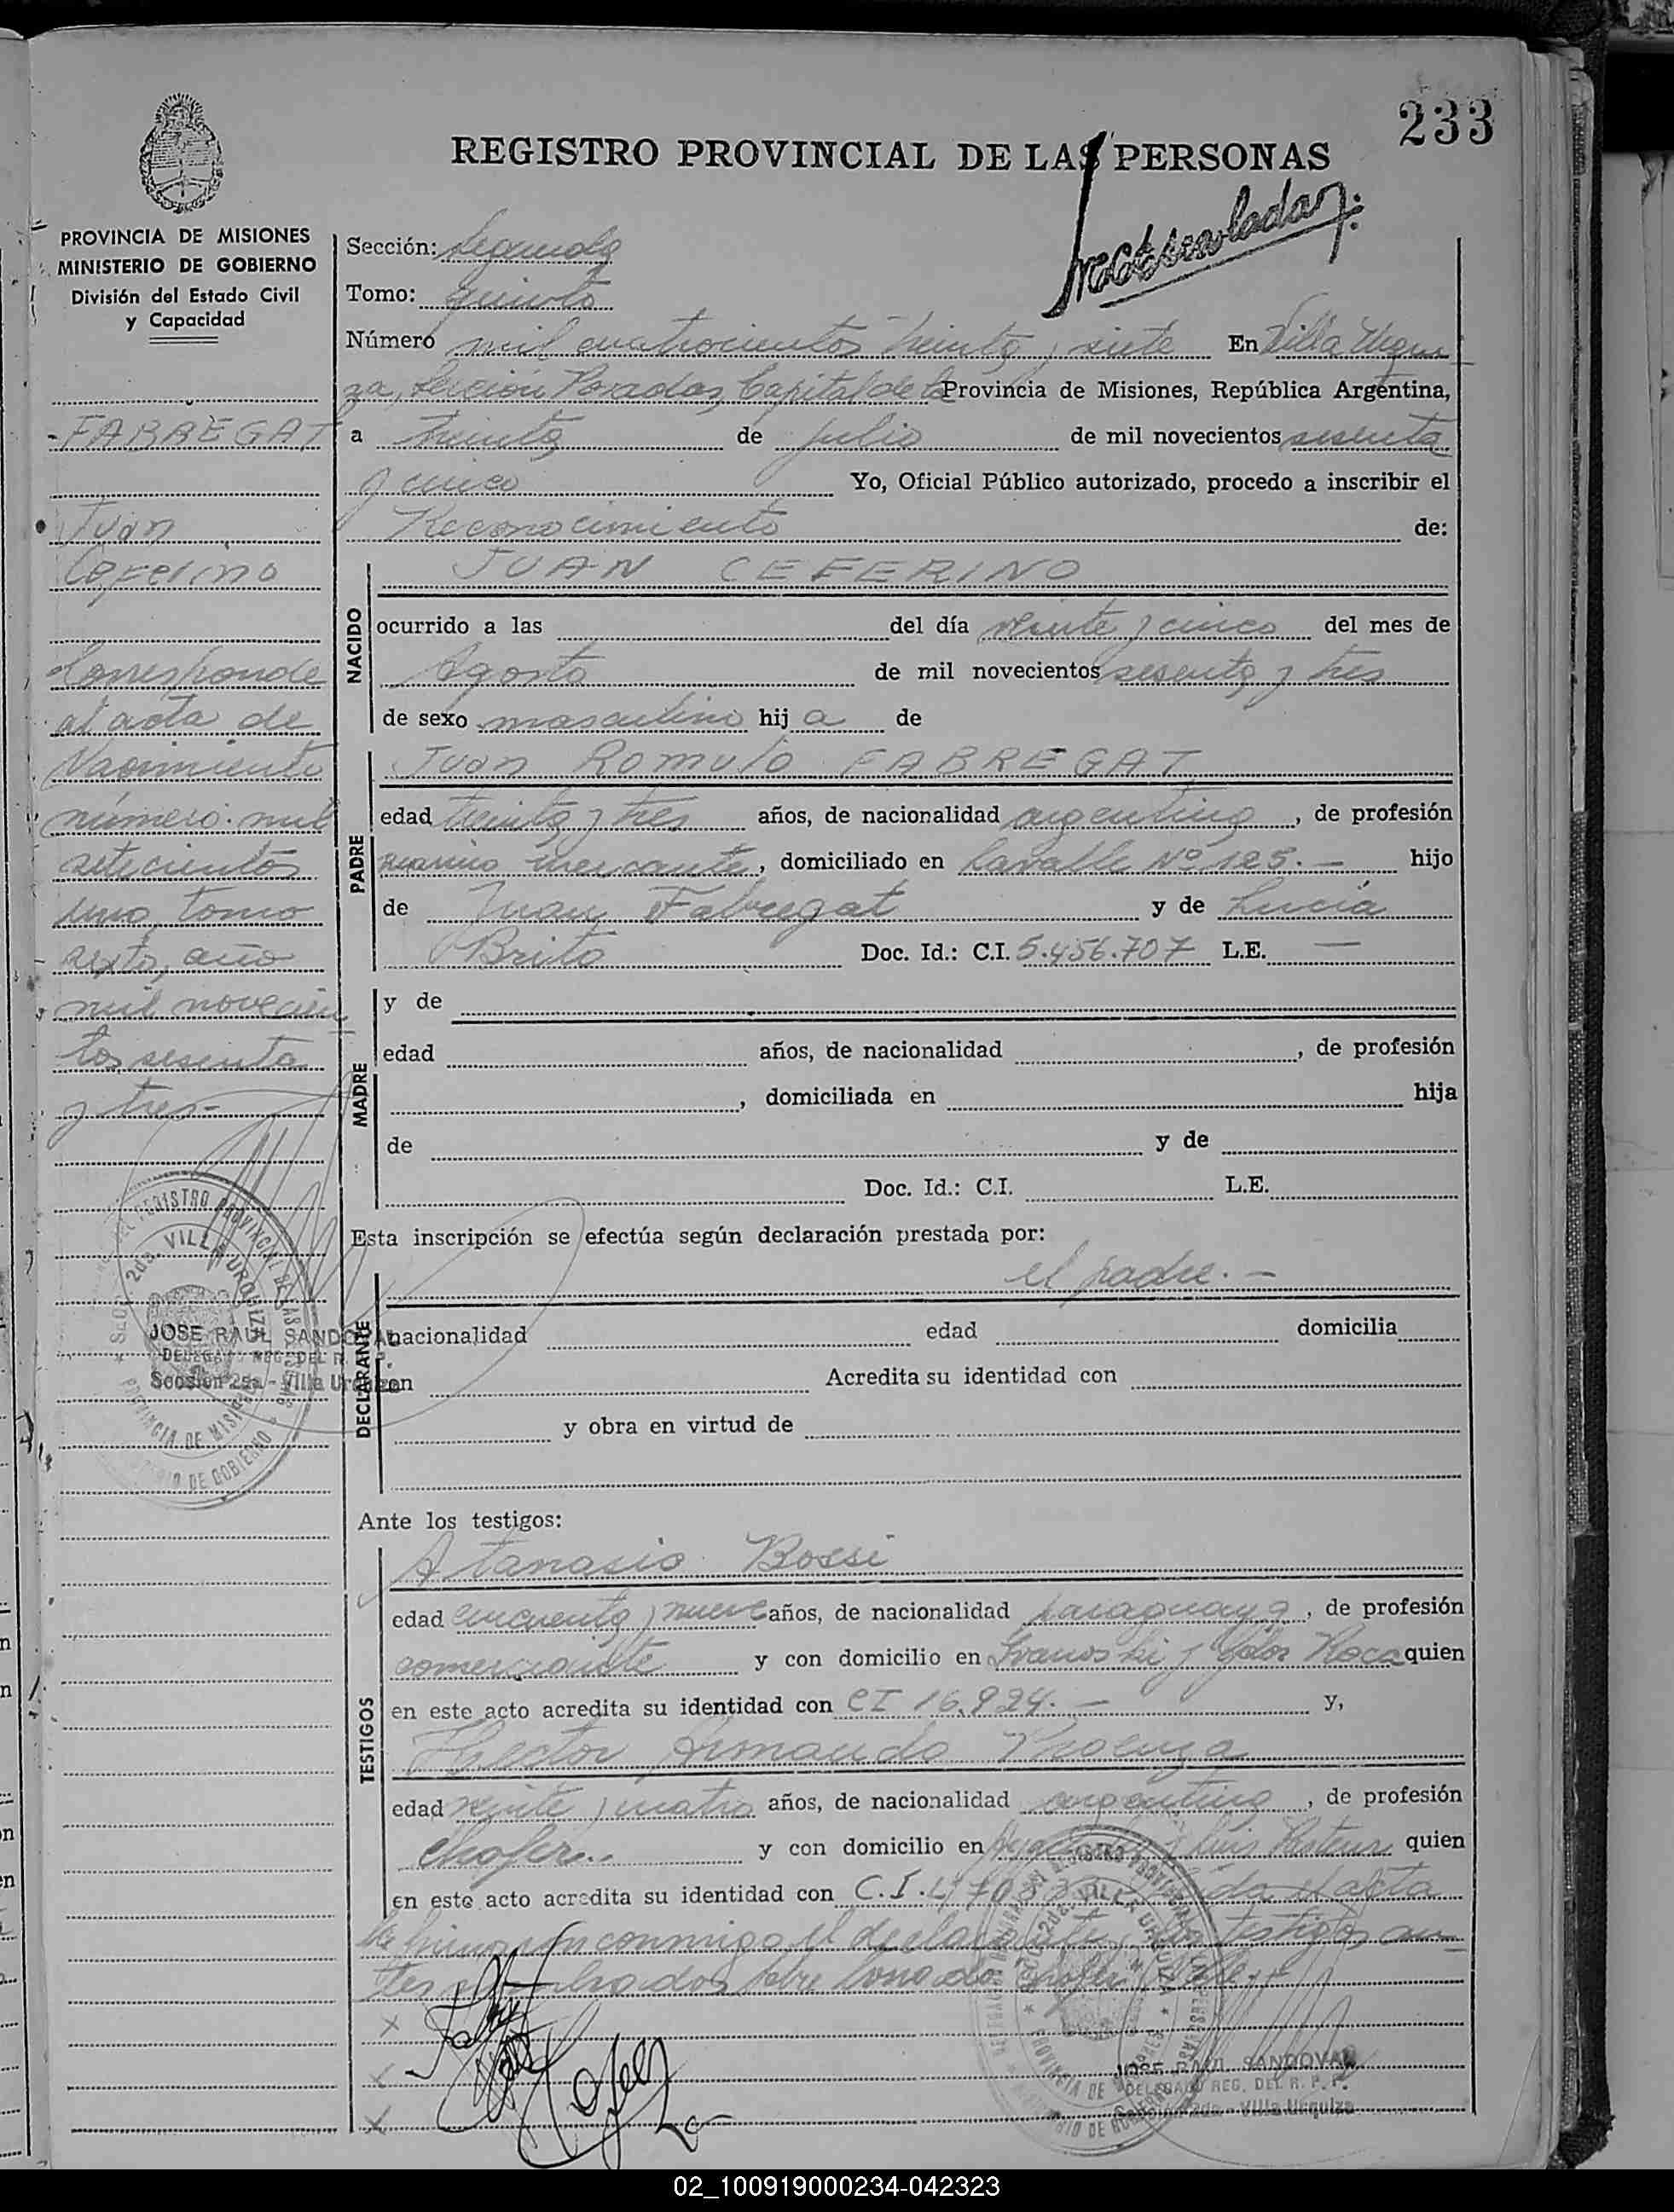 233
REGISTRO PROVINCIAL DE LAS PERSONAS
PROVINCIA DE MISIONES
MINISTERIO DE GOBIERNO
División del Estado Civil
y Capacidad
FABREGAT
Juan
Ceferino
Corresponde
al acta de
Nacimiento
número mil
setecientos
uno, tomo
sexto, año
mil novecien
tos sesenta
y tres.-
Sección: Segunda
Tomo: quinto
Número mil cuatrocientos treinta y siete En Villa Urqui
za, Sección Posadas, Capital de la Provincia de Misiones, República Argentina,
a treinta de julio de mil novecientos sesenta
y cinco Yo, Oficial Público autorizado, procedo a inscribir el
Reconocimiento de:
NACIDO
JUAN CEFERINO
ocurrido a las del día veinte y cinco del mes de
Agosto de mil novecientos sesenta y tres
de sexo masculino hij a de
PADRE
Juan Romulo FABREGAT
edad treinta y tres años, de nacionalidad argentina, de profesión
marino mercante, domiciliado en Lavalle Nº 125.- hijo
de Juan Fabregat y de Lucía
Brito Doc. Id.: C.I. 5.456.707 L.E. —
MADRE
y de
edad años, de nacionalidad , de profesión
, domiciliada en hija
de y de
Doc. Id.: C.I. L.E.
Esta inscripción se efectúa según declaración prestada por:
DECLARANTE
el padre.-
nacionalidad edad domicilia
en Acredita su identidad con
y obra en virtud de
Ante los testigos:
TESTIGOS
Atanasio Bossi
edad cincuenta y nueve años, de nacionalidad paraguaya, de profesión
comerciante y con domicilio en y Roca quien
en este acto acredita su identidad con CI 16.924.- y,
Hector Armando Proenza
edad veinte y cuatro años, de nacionalidad argentina, de profesión
chofer.. y con domicilio en y Luis Pasteur quien
en este acto acredita su identidad con C.I. el acta
la firman conmigo el declarante, los testigos an
tes
JOSE RAUL SANDOVAL
DELEGADO REG. DEL R. P. P.
Sección 2da - Villa Urquiza
JOSE RAUL SANDOVAL
DELEGADO REG. DEL R. P. P.
Sección 2da - Villa Urquiza
02_100919000234-042323